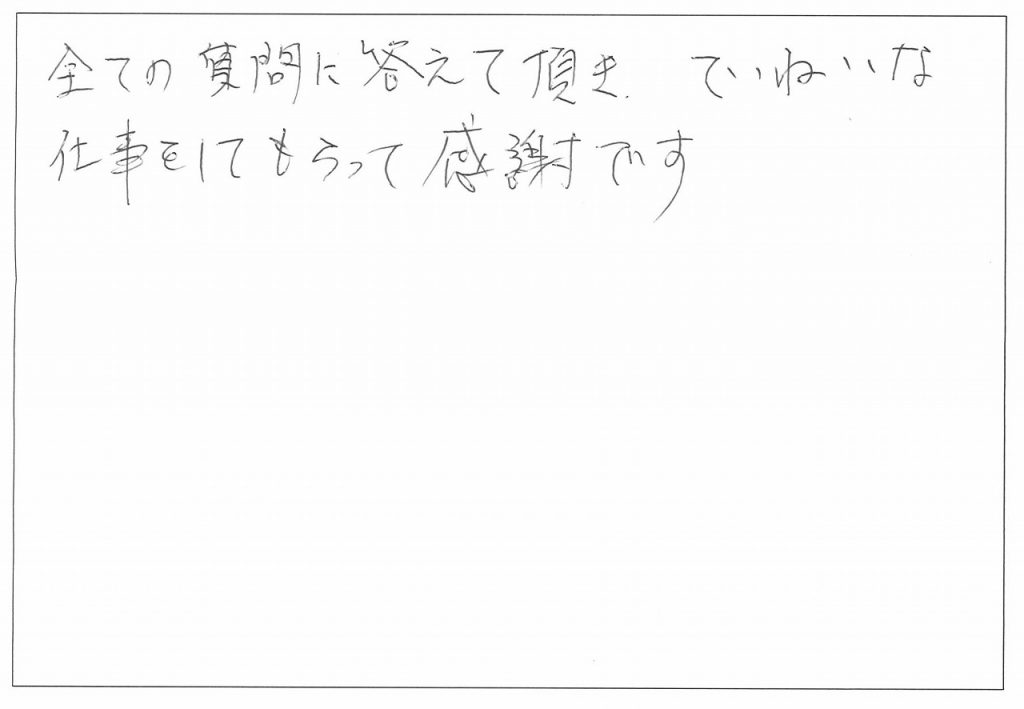 全ての質問に答えて頂き、ていねいな
仕事をしてもらって感謝です